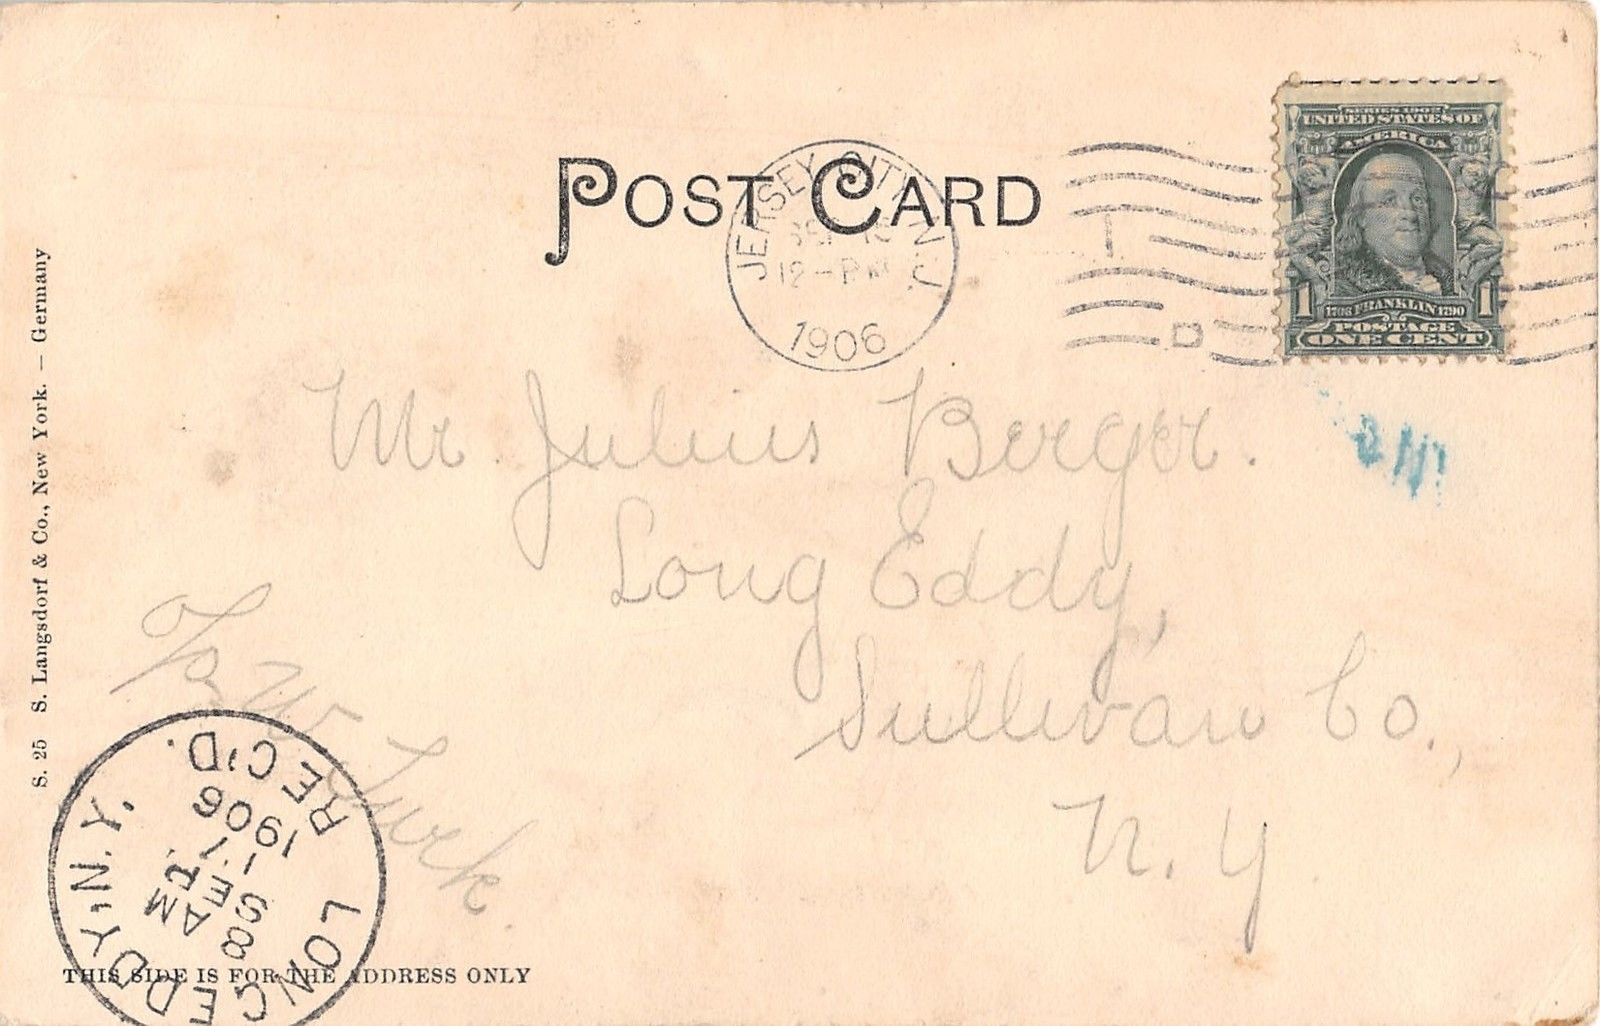 POST CARD
JERSEY CITY N.J.
12-PM
1906
SERIES 1902
UNITED STATES OF
AMERICA
1 1706 FRANKLIN 1790 1
POSTAGE
ONE CENT
D
Mr. Julius Berger.
Long Eddy,
Sullivan Co.,
N. Y
W. Turk
S. 25 S. Langsdorf & Co., New York. — Germany
LONG EDDY, N.Y.
REC'D.
8 AM
SEP
1906
THIS SIDE IS FOR THE ADDRESS ONLY